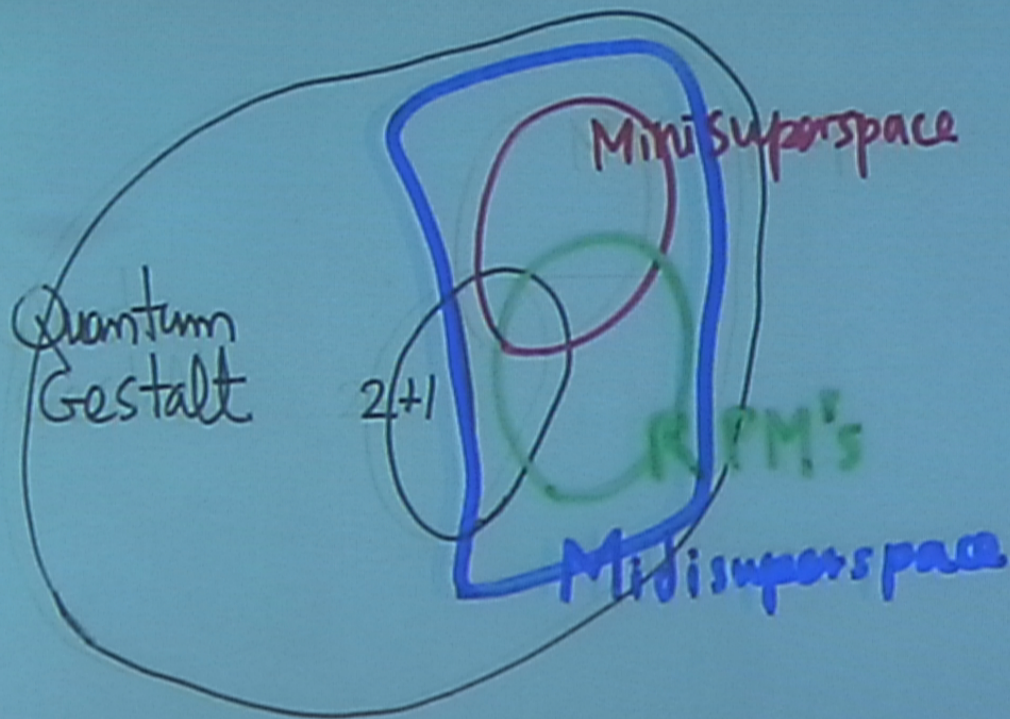 Minisuperspace
Quantum
Gestalt
2+1
RPM's
Midisuperspace